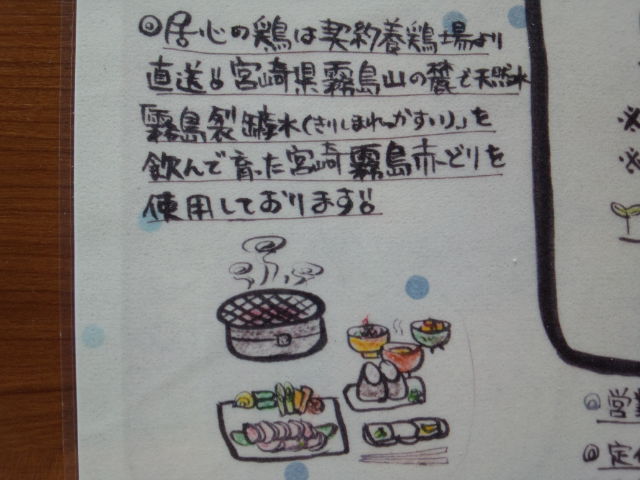 ◎居心の鶏は契約養鶏場より
直送!!宮崎県霧島山の麓で天然水
「霧島裂罅水(きりしまれっかすい)」を
飲んで育った宮崎霧島赤どりを
使用しております!!
※
※
◎営業
◎定休